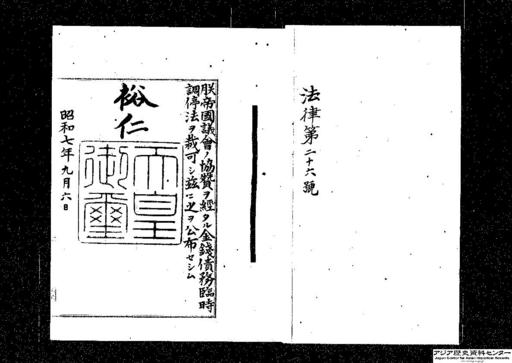 法律第二十六號
朕帝國議會ノ協贊ヲ經タル金錢債務臨時
調停法ヲ裁可シ茲ニ之ヲ公布セシム
裕仁
天皇
御璽
昭和七年九月六日
アジア歴史資料センター
Japan Center for Asian Historical Records